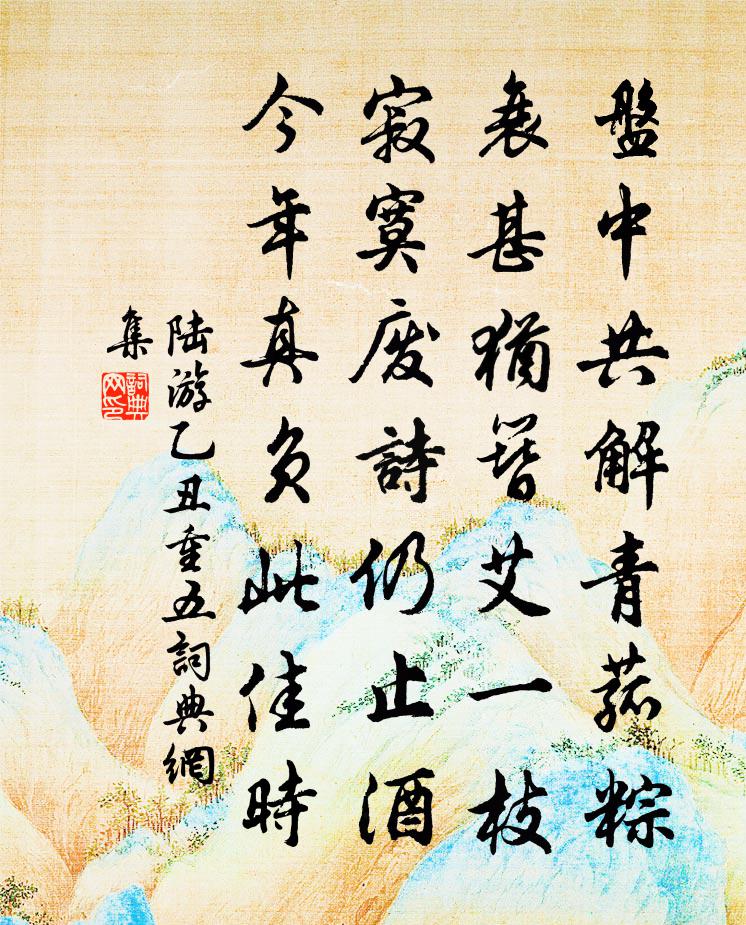 盤中共解青菰粽
衰甚猶簪艾一枝
寂寞废詩仍止酒
今年真负此佳時
陆游乙丑重五詞典網
集
詞典網印